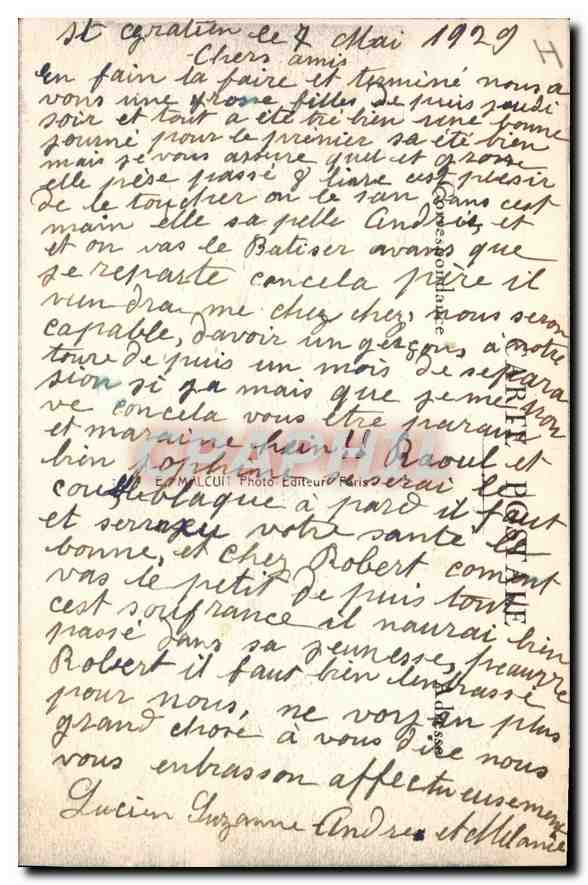 St Gratien le 7 Mai 1929
H
Chers amis
En fain la faire et terminé nous a
vons une grosse filles, de puis jeudi
soir et tout a été tré bien une bonne
journé pour le prémier sa été bien
mais je vous assure quel et grosse
elle pése passé 8 livre cest plésir
de le toucher on le san dans cest
main elle sa pelle Andrée et
et on vas le Batiser avans que
je reparte concela père il
viendra me cher cher, nous seron
capable, davoir un gerçons, à notre
toure de puis un mois de sépara
sion si ja mais que je me trou
ve concela vous être parain
et maraine hein !! Raoul et
bien Joséphine se serai le
cou de blaque à pard il faut
et serieux votre santé et
bonne, et chez Robert coment
vas le petit de puis toute
cest soufrance il naurai bien
passé dans sa jeunesse, peauvre
Robert il faut bien lenbrassé
pour nous, ne voyan plus
grand chose à vous dire nous
vous enbrasson affectueusement
Lucien Suzanne Andrée et Mélanie
CARTE POSTALE
Correspondance
Adresse
E. MALCUIT Photo Editeur Paris
CPAPHIL